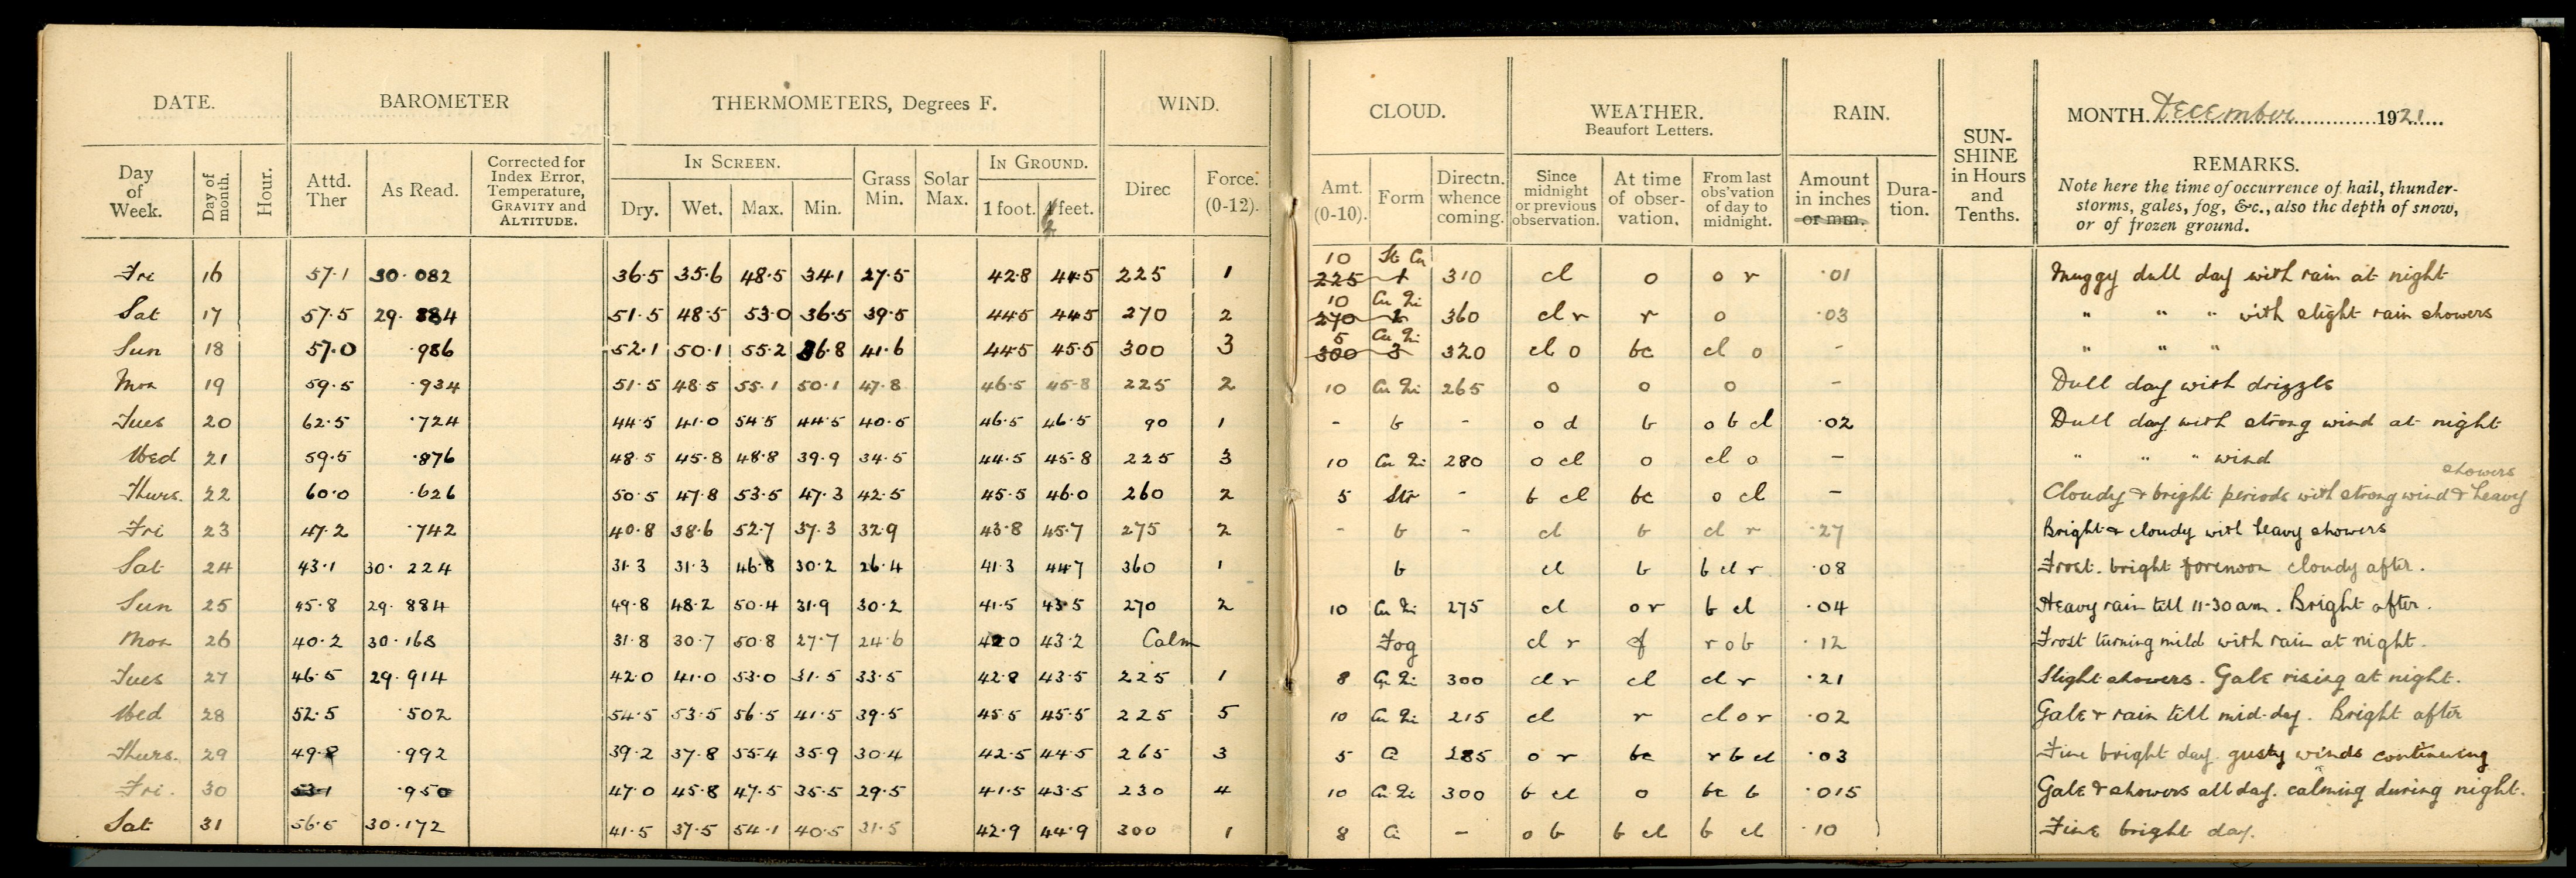 DATE. BAROMETER THERMOMETERS, Degrees F. WIND. CLOUD. WEATHER. Beaufort Letters. RAIN. SUN-SHINE in Hours and Tenths. MONTH December 1921
Day of Week. Day of month. Hour. Attd. Ther As Read. Corrected for Index Error, Temperature, GRAVITY and ALTITUDE. IN SCREEN. Dry. Wet. Max. Min. Grass Min. Solar Max. IN GROUND. 1 foot. 2 feet. Direc Force. (0-12). Amt. (0-10). Form Directn. whence coming. Since midnight or previous observation. At time of obser-vation. From last obs'vation of day to midnight. Amount in inches or mm. Dura-tion. REMARKS.
Note here the time of occurrence of hail, thunder-
storms, gales, fog, &c., also the depth of snow,
or of frozen ground.
10 St Cu
Fri 16 57.1 30.082 36.5 35.6 48.5 34.1 27.5 42.8 44.5 225 1 225 1 310 cl o o r .01 Muggy dull day with rain at night
10 Cu Ni
Sat 17 57.5 29.884 51.5 48.5 53.0 36.5 39.5 44.5 44.5 270 2 270 2 360 cl r r o .03 " " " with slight rain showers
5 Cu Ni
Sun 18 57.0 .986 52.1 50.1 55.2 36.8 41.6 44.5 45.5 300 3 300 3 320 cl o bc cl o - " " "
Mon 19 59.5 .934 51.5 48.5 55.1 50.1 47.8 46.5 45.8 225 2 10 Cu Ni 265 o o o - Dull day with drizzle
Tues 20 62.5 .724 44.5 41.0 54.5 44.5 40.5 46.5 46.5 90 1 - b - o d b o b cl .02 Dull day with strong wind at night
Wed 21 59.5 .876 48.5 45.8 48.8 39.9 34.5 44.5 45.8 225 3 10 Cu Ni 280 o cl o cl o - " " " wind
Thurs. 22 60.0 .626 50.5 47.8 53.5 47.3 42.5 45.5 46.0 260 2 5 Str - b cl bc o cl - Cloudy & bright periods with strong wind & heavy showers
Fri 23 47.2 .742 40.8 38.6 52.7 37.3 32.9 43.8 45.7 275 2 - b - cl b cl r .27 Bright & cloudy with heavy showers
Sat 24 43.1 30.224 31.3 31.3 46.8 30.2 26.4 41.3 44.7 360 1 b cl b b cl r .08 Frost. bright forenoon cloudy after.
Sun 25 45.8 29.884 49.8 48.2 50.4 31.9 30.2 41.5 43.5 270 2 10 Cu Ni 275 cl o r b cl .04 Heavy rain till 11.30 am. Bright after.
Mon 26 40.2 30.168 31.8 30.7 50.8 27.7 24.6 42.0 43.2 Calm Fog cl r f r o b .12 Frost turning mild with rain at night.
Tues 27 46.5 29.914 42.0 41.0 53.0 31.5 33.5 42.8 43.5 225 1 8 Cu Ni 300 cl r cl cl r .21 Slight showers. Gale rising at night.
Wed 28 52.5 .502 54.5 53.5 56.5 41.5 39.5 45.5 45.5 225 5 10 Cu Ni 215 cl r cl o r .02 Gale & rain till mid-day. Bright after
Thurs. 29 49.8 .992 39.2 37.8 55.4 35.9 30.4 42.5 44.5 265 3 5 Ci 285 o r bc r b cl .03 Fine bright day gusty winds continuing
Fri. 30 53.1 .950 47.0 45.8 47.5 35.5 29.5 41.5 43.5 230 4 10 Cu Ni 300 b cl o bc b .015 Gale & showers all day. calming during night.
Sat 31 56.5 30.172 41.5 37.5 54.1 40.5 31.5 42.9 44.9 300 1 8 Ci - o b b cl b cl .10 Fine bright day.